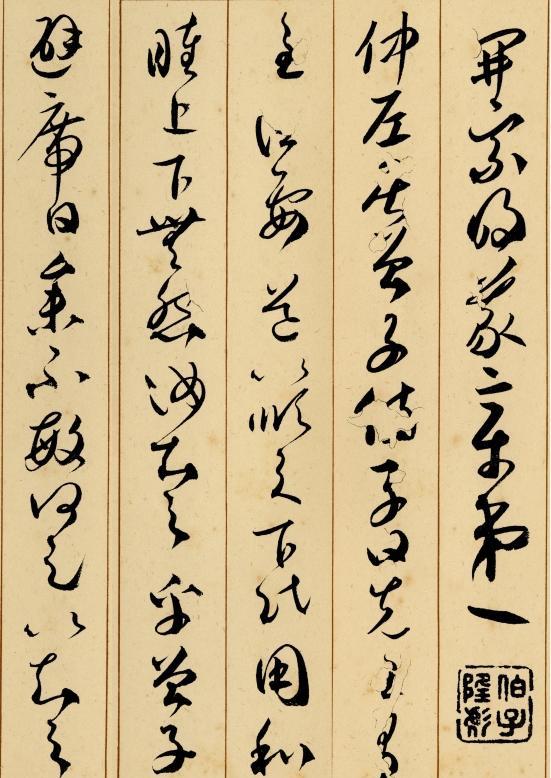 開宗明義章第一
仲尼居曾子侍子曰先王有
至德要道以順天下民用和
睦上下無怨汝知之乎曾子
避席曰參不敏何足以知之